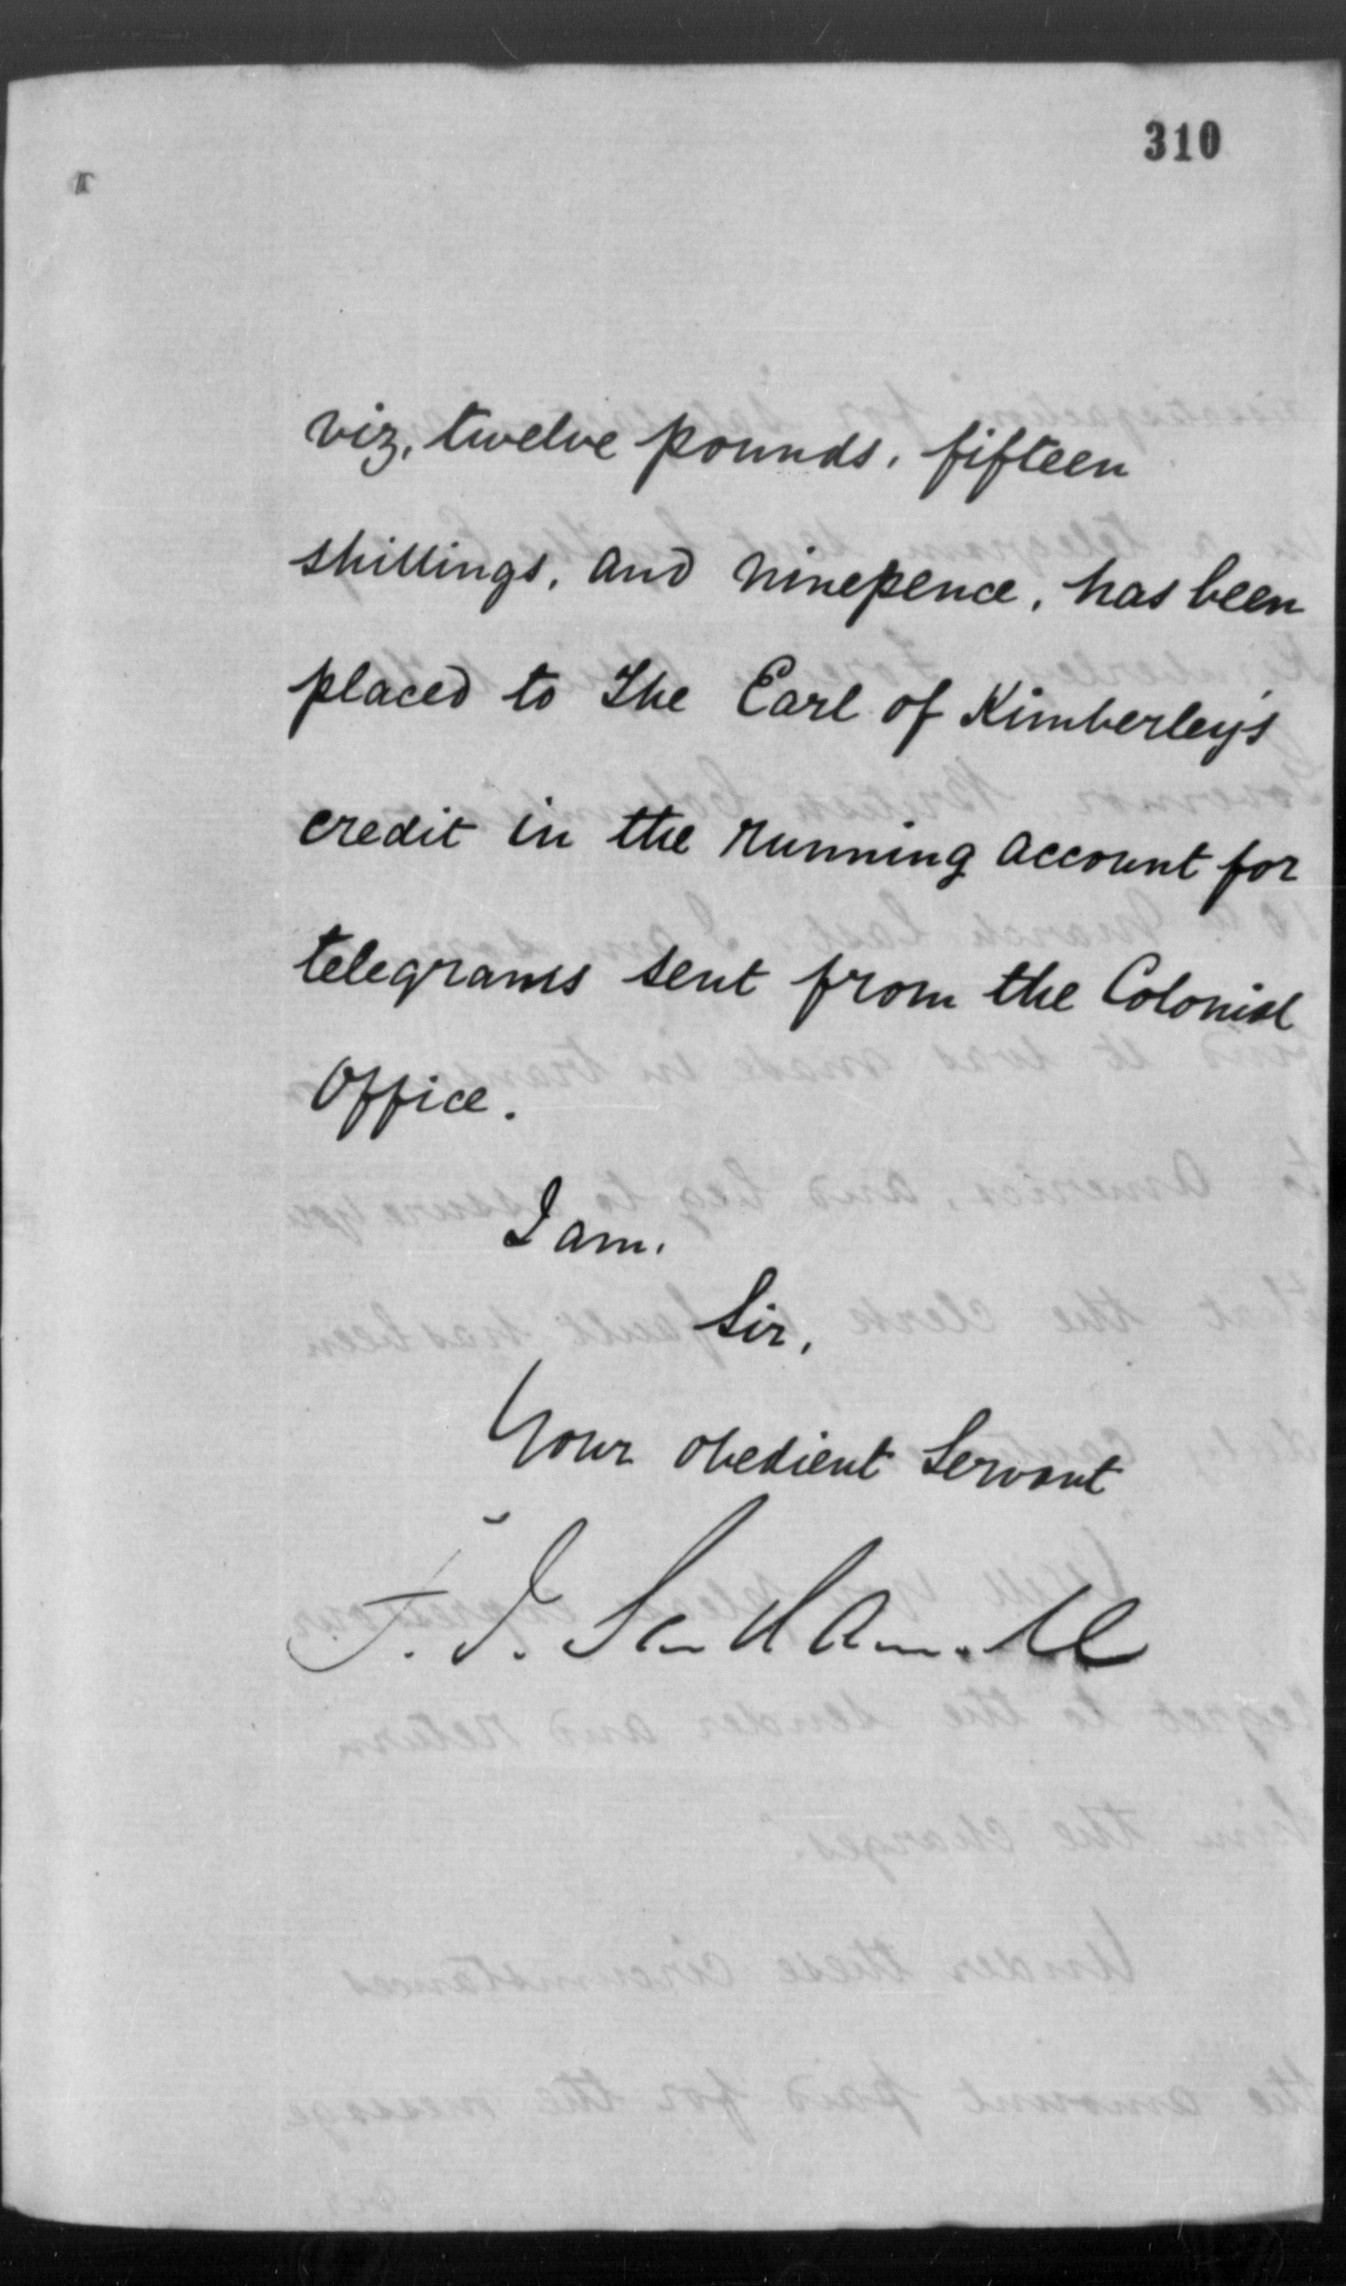 310
viz, twelve pounds, fifteen
shillings, and ninepence, has been
placed to The Earl of Kimberley's
credit in the running account for
telegrams sent from the Colonial
Office.
I am,
Sir,
Your obedient Servant